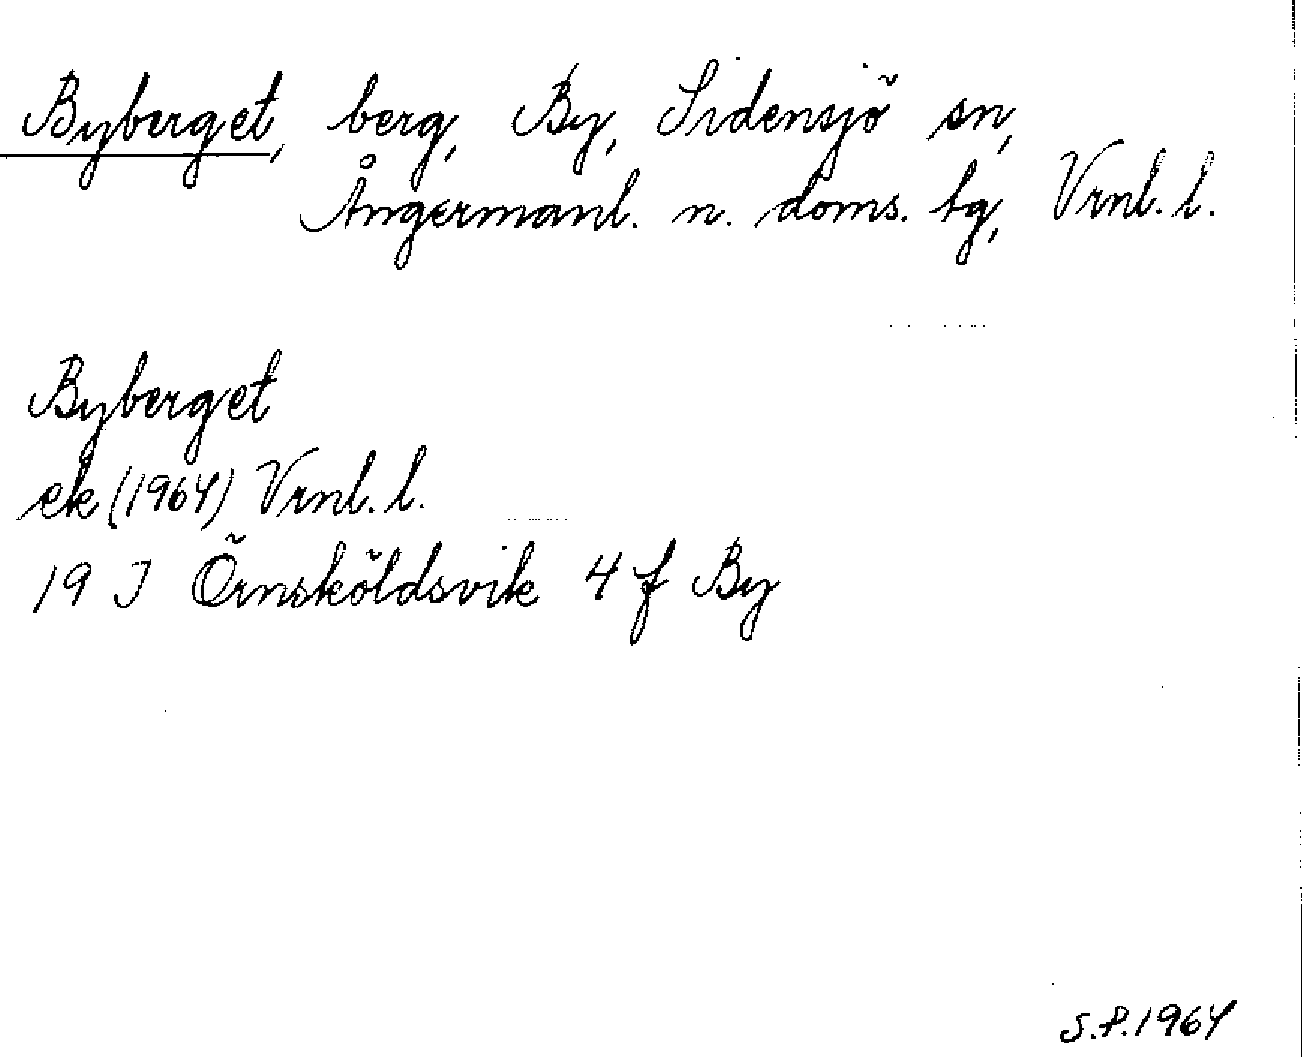 Byberget, berg, By, Sidensjö sn,
Ångermanl. n. doms. tg, Vrnl. l.
Byberget
ek (1964) Vrnl. l.
19 J Örnsköldsvik 4 f By
S.P. 1964